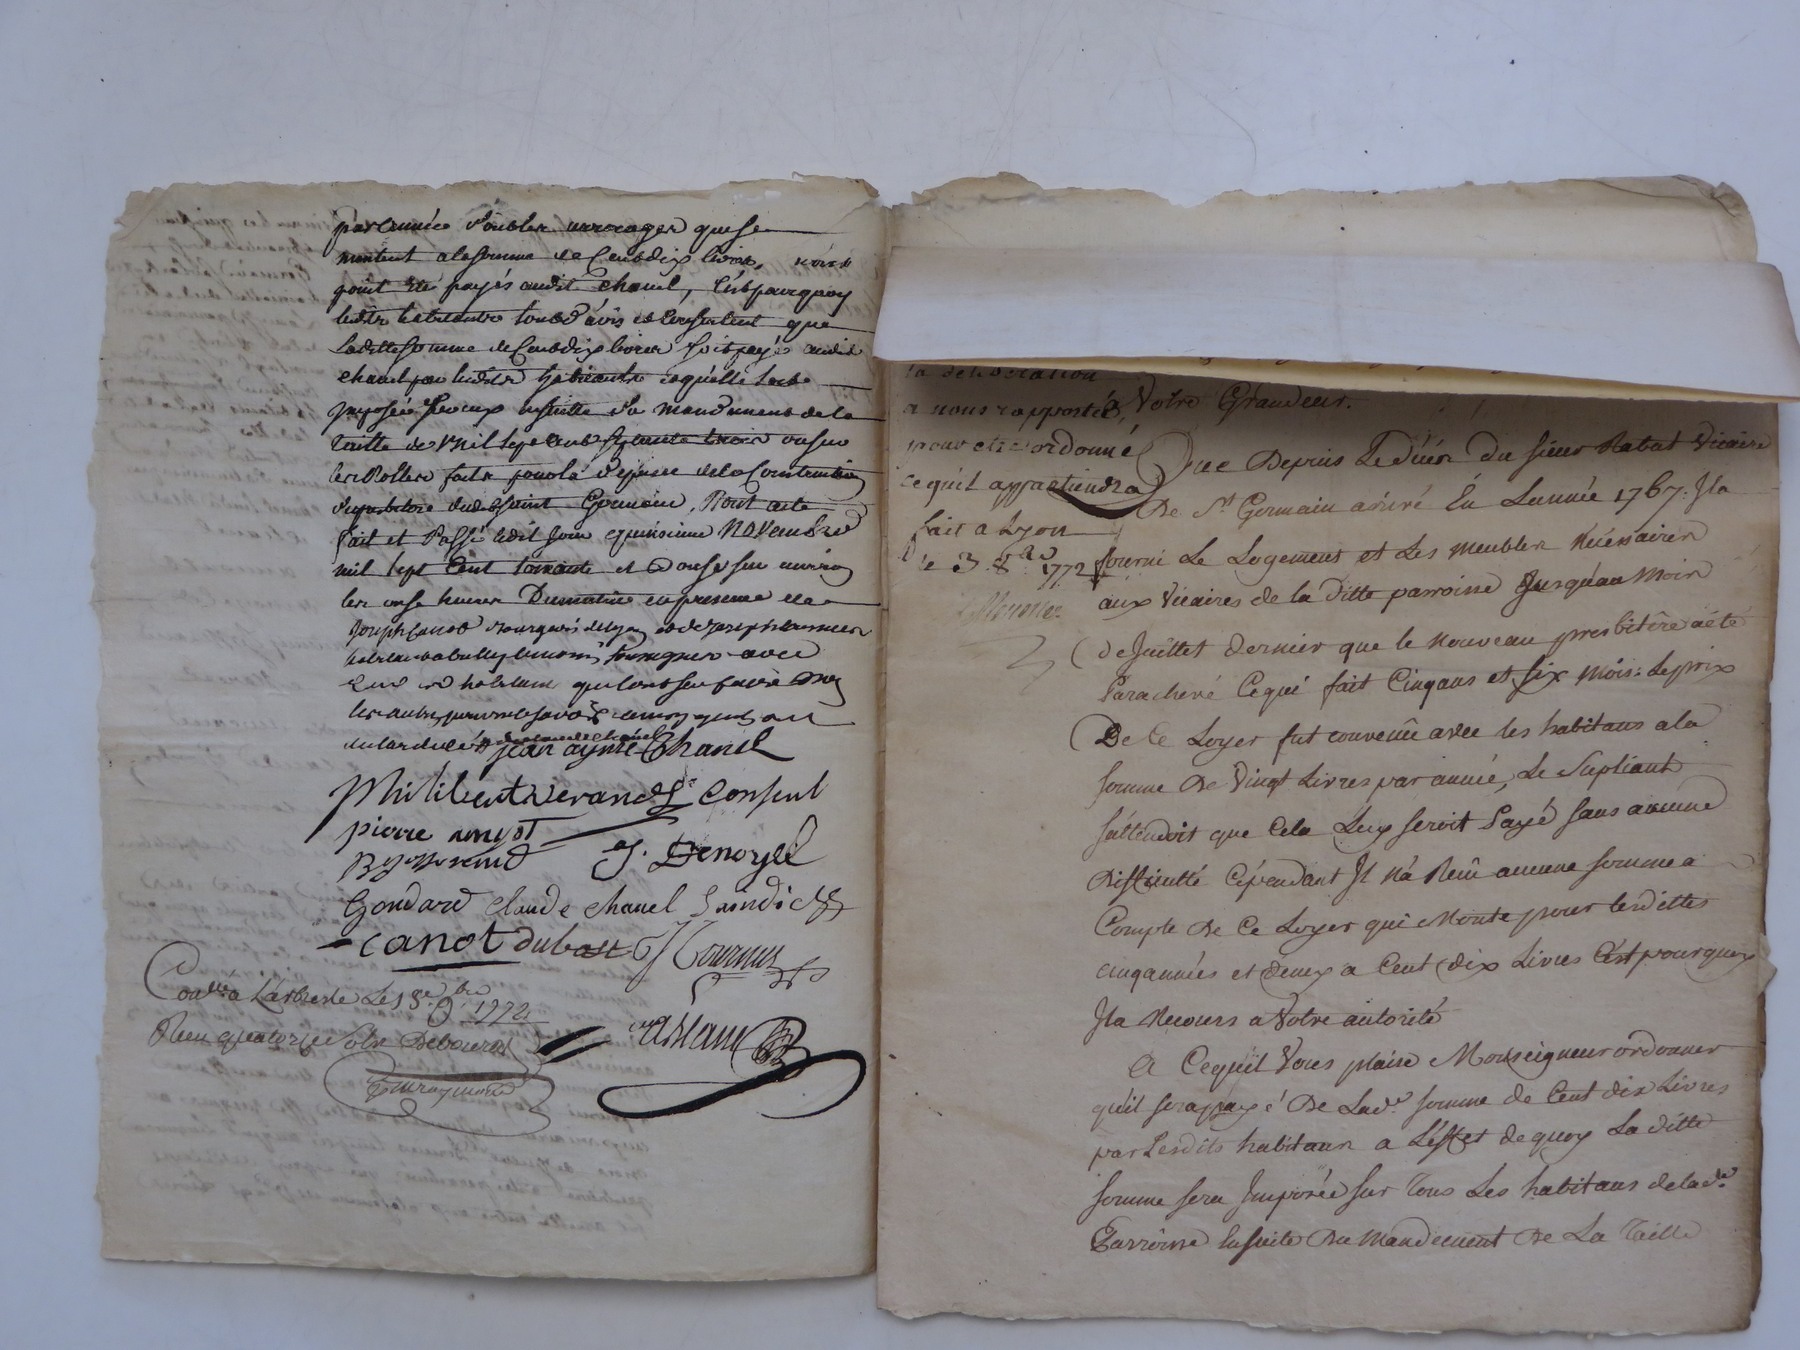 par année double arrerages que se
montent a la somme de Cent dix livres, n'ont
point été payés audit chanel, C'est pourquoy
lesdits habitants sont d'avis et Consentent que
Laditte somme de Cent dix livres soit payé audit
chanel par lesdits habitants et qu'elle soit
Imposée ensuitte du mandement de la
taille de mil sept cent septante trois ou sur
les Rolles faits pour la dépense de la Construction
du presbitere dudit Saint Germain, Dont acte
fait et Passé ledit jour quinzieme Novembre
mil sept Cent soixante et douse sur environ
les onse heures Du matin en presence de
Joseph Canot Bourgeois de Lyon et de Joseph
habitant a Bully temoins soussignés avec
ceux des habitans qui l'ont sçu faire
les autres pour ne le savoir
jean aymé Chanel
Philibert verand Consul
pierre amyot
J. Denoyel
Gondard claude chanel saindic
canot dubost Tournus
Con.lé a L'arbresle Le 18e 9bre 1772
Reçu quatorze sols Debourés
la deliberation
a nous rapportée,
pour etre ordonné
ce qu'il appartiendra
fait a Lyon
le 3. 8bre 1772
a Votre Grandeur.
Que Depuis Le Décés Du sieur Rabut Vicaire
De St. Germain arivé En Lannée 1767. Il a
fourni Le Logement et Les meubles Nécessaires
aux Vicaires de la Ditte parroisse Jusqu'au mois
de Juillet dernier que le nouveau presbitère a été
Parachevé Ce qui fait Cinq ans et six mois: Le prix
De Ce Loyer fut convenû avec les habitans a la
somme De Vingt Livres par année, Le Supliant
s'attendoit que Cela Luy seroit Payé sans aucune
Difficulté Cépendant Il N'a Reçû aucune somme a
Compte De Ce Loyer qui Monte pour lesdittes
cinq années et demy a Cent dix Livres C'est pourquoy
Il a Recours a Votre autorité
A Ce qu'il Vous plaise Monseigneur ordonner
qu'il sera payé De Lad.e somme de Cent dix Livres
par Lesdits habitans a L'effet de quoy La ditte
somme sera Imposée sur Tous Les habitans de lad.e
Parroisse Ensuite Du Mandement De La Taille